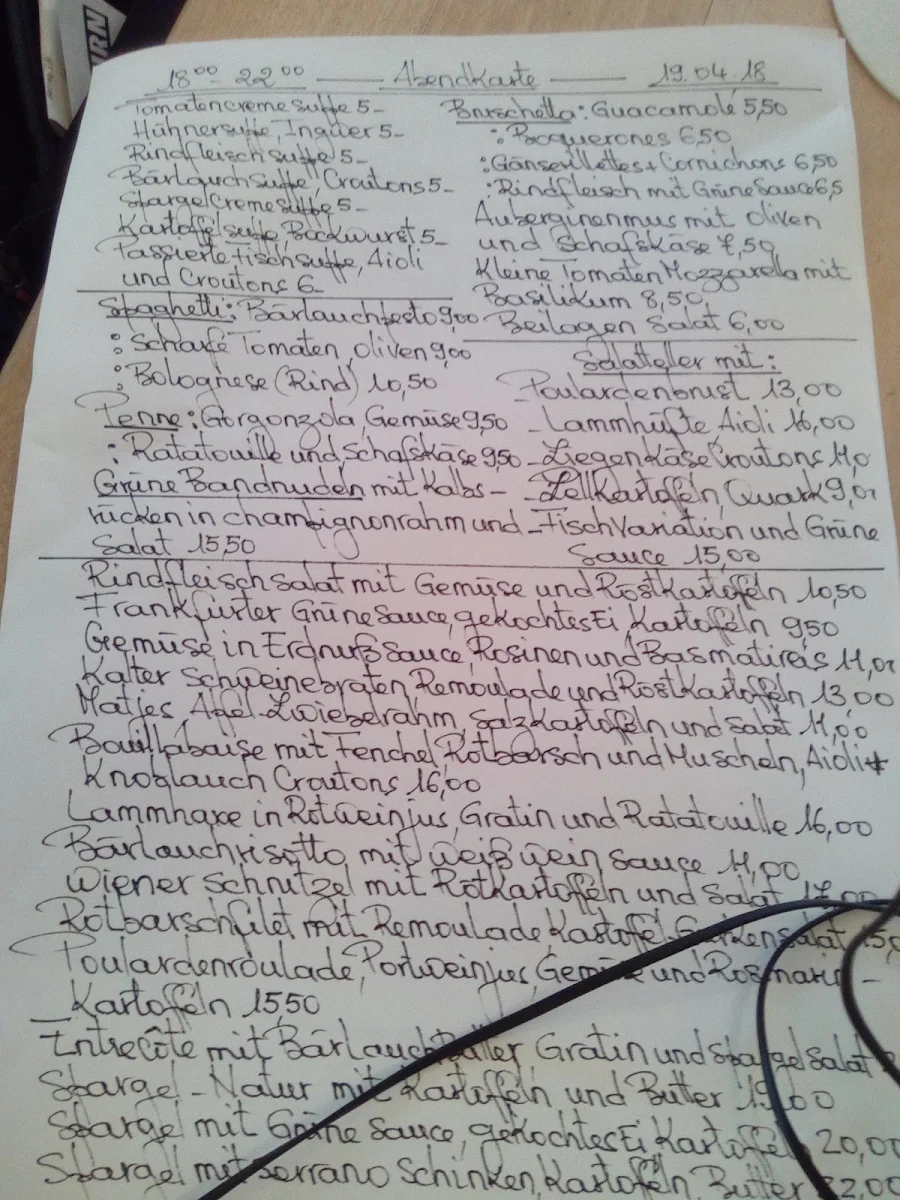 18⁰⁰ - 22⁰⁰ Abendkarte 19.04.18
Tomatencremesuppe 5-
Hühnersuppe, Ingwer 5-
Rindfleischsuppe 5-
Bärlauchsuppe, Croutons 5-
Spargelcremesuppe 5-
Kartoffelsuppe, Bockwurst 5-
Passierte Fischsuppe, Aioli
und Croutons 6-
Bruschetta: Guacamole 5,50
: Boquerones 6,50
: Gänserillettes + Cornichons 6,50
: Rindfleisch mit Grüne Sauce 6,5
Auberginenmus mit Oliven
und Schafskäse 7,50
Kleine Tomaten Mozzarella mit
Basilikum 8,50
Beilagen Salat 6,00
Spaghetti: Bärlauchpesto 9,00
: Scharfe Tomaten, Oliven 9,00
: Bolognese (Rind) 10,50
Penne: Gorgonzola Gemüse 9,50
: Ratatouille und Schafskäse 9,50
Grüne Bandnudeln mit Kalbs-
rücken in Champignonrahm und
Salat 15,50
Salatteller mit:
- Poulardenbrust 13,00
- Lammhüfte, Aioli 16,00
- Ziegenkäse Croutons 11,0
- Pellkartoffeln, Quark 9,0
- Fisch Variation und Grüne
Sauce 15,00
Rindfleischsalat mit Gemüse und Röstkartoffeln 10,50
Frankfurter Grüne Sauce, gekochtes Ei Kartoffeln 9,50
Gemüse in Erdnußsauce, Rosinen und Basmatireis 11,0
Kalter Schweinebraten, Remoulade und Röstkartoffeln 13,00
Matjes, Apfel-Zwiebelrahm, Salzkartoffeln und Salat 11,00
Bouillabaise mit Fenchel, Rotbarsch und Muscheln, Aioli +
Knoblauch Croutons 16,00
Lammhaxe in Rotweinjus, Gratin und Ratatouille 16,00
Bärlauchrisotto mit Weißwein Sauce 11,00
Wiener Schnitzel mit Röstkartoffeln und Salat 17,00
Rotbarschfilet mit Remoulade, Kartoffel-Gurkensalat 5,
Poulardenroulade, Portweinjus, Gemüse und Rosmarin-
Kartoffeln 15,50
Entrecôte mit Bärlauchbutter Gratin und Spargelsalat
Spargel-Natur mit Kartoffeln und Butter 19,00
Spargel mit Grüne Sauce, gekochtes Ei Kartoffeln 20,00
Spargel mit Serrano Schinken, Kartoffeln, Butter 22,00